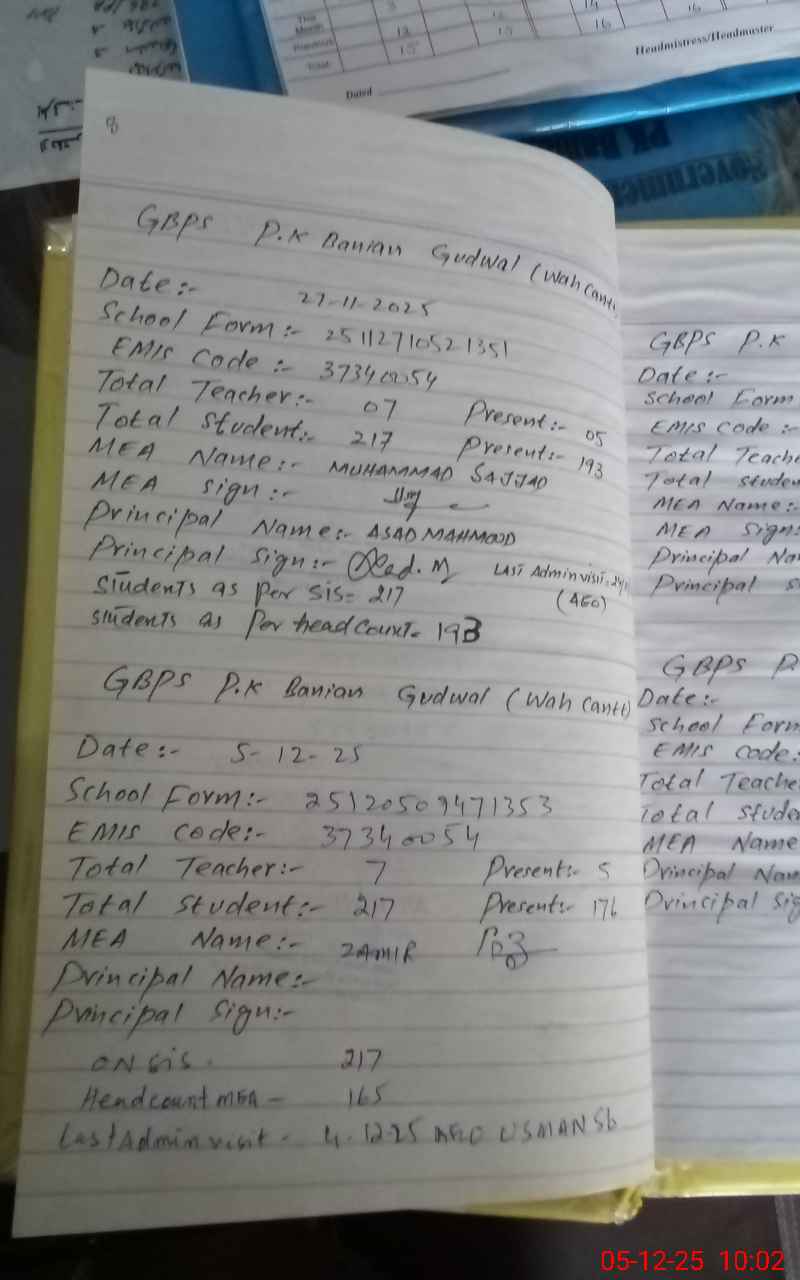 This Month 12 12 14 16
Previous 15 15 16 16
Total
Headmistress/Headmaster
Dated
Government
PK Bani
8
GBPS P.K Banian Gudwal (Wah Cantt)
Date:- 27-11-2025
School Form:- 25112710521351
EMIS Code:- 37340054
Total Teacher:- 07 Present:- 05
Total Student:- 217 Present:- 193
MEA Name:- MUHAMMAD SAJJAD
MEA Sign:-
Principal Name:- ASAD MAHMOOD
Principal Sign:- Asad. M Last Admin visit:
Students as Per SIS= 217 (AEO)
Students as Per headcount= 193
GBPS P.K Banian Gudwal (Wah Cantt)
Date:- 5-12-25
School Form:- 25120509471353
EMIS Code:- 37340054
Total Teacher:- 7 Present:- 5
Total Student:- 217 Present:- 176
MEA Name:- ZAMIR
Principal Name:-
Principal Sign:-
ON SIS. 217
Headcount MEA - 165
Last Admin visit - 4-12-25 AEO USMAN Sb
GBPS P.K
Date:-
School Form
EMIS Code:-
Total Teache
Total Studen
MEA Name:-
MEA Sign:
Principal Na
Principal S
GBPS P.
Date:-
School Form
EMIS Code:
Total Teache
Total Stude
MEA Name
Principal Nam
Principal Sig
05-12-25 10:02